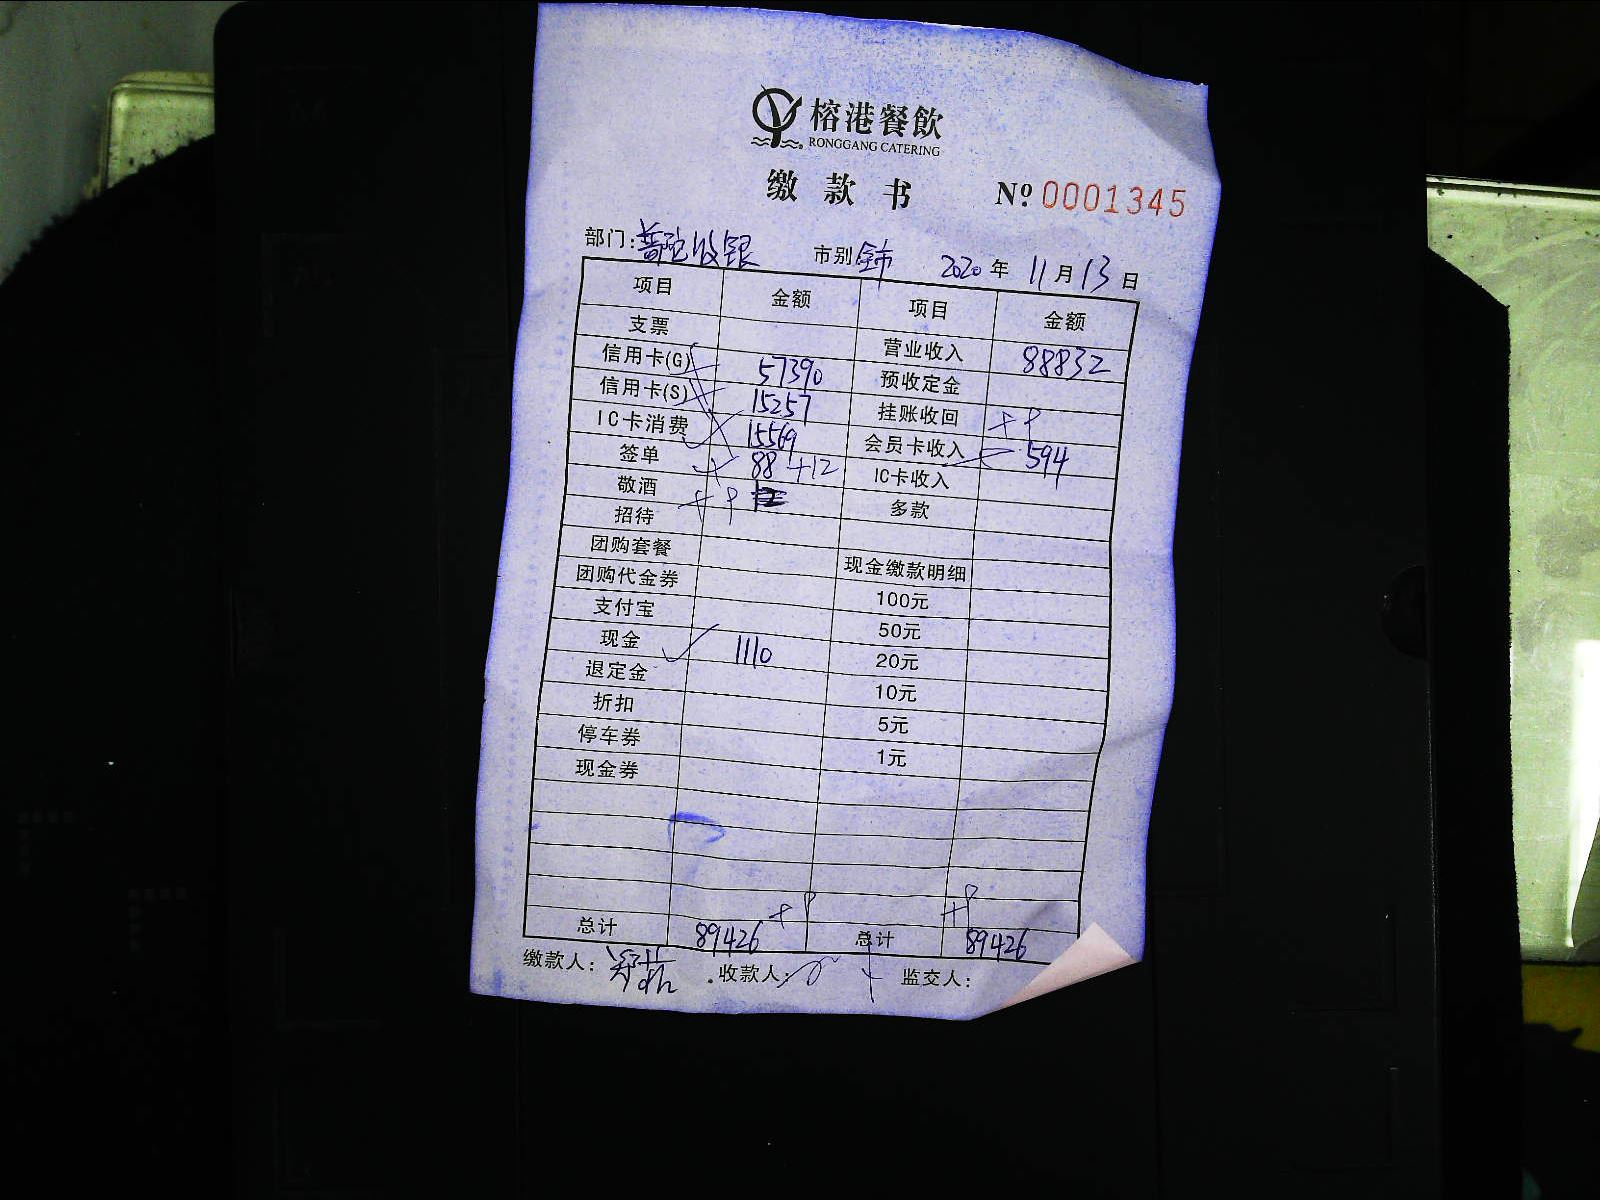 榕港餐飲
RONGGANG CATERING
缴款书 Nº 0001345
部门:普陀收银 市别 全市 2020年11月13日
项目 金额 项目 金额
支票 营业收入 88832
信用卡(G) 57390 预收定金
信用卡(S) 15257 挂账收回
IC卡消费 15569 会员卡收入 594
签单 88 +12 IC卡收入
敬酒 多款
招待
团购套餐 现金缴款明细
团购代金券 100元
支付宝 50元
现金 1110 20元
退定金 10元
折扣 5元
停车券 1元
现金券
总计 89426 总计 89426
缴款人: 收款人: 监交人: